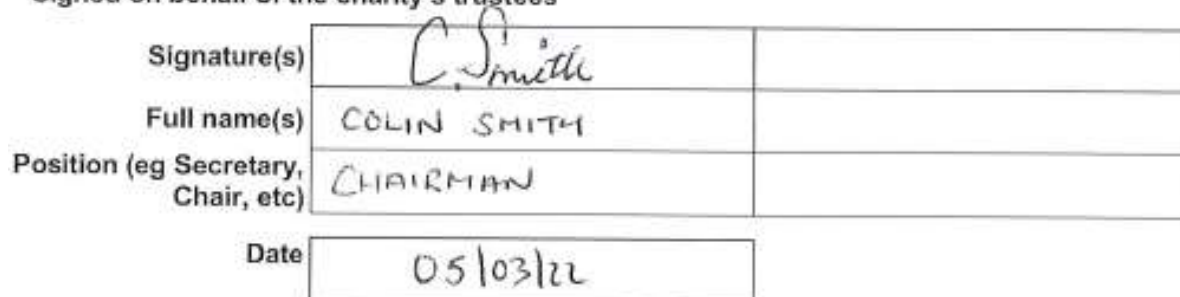 Signed on behalf of the charity's trustees
Signature(s) C. Smith
Full name(s) COLIN SMITH
Position (eg Secretary,
Chair, etc) CHAIRMAN
Date 05/03/22